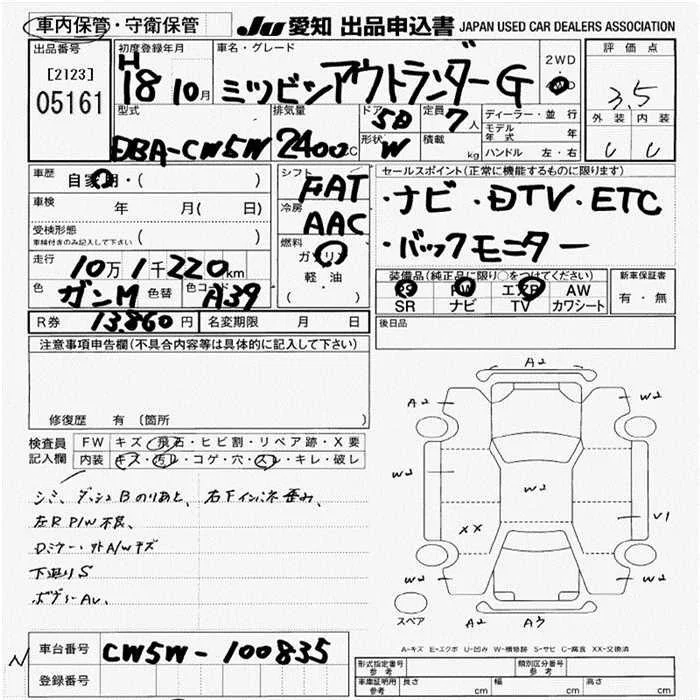 車内保管・守衛保管
JU 愛知 出品申込書 JAPAN USED CAR DEALERS ASSOCIATION
出品番号 [2123] 05161
初度登録年月 H 18 10月
車名・グレード ミツビシ アウトランダー G
2WD 4WD
評価点 3.5
外装 内装
型式 DBA-CW5W
排気量 2400 CC
ドア 5D
形状 W
定員 7人
積載 kg
ディーラー・並行
モデル年式 年
ハンドル 左・右
車歴 自家用・( )
車検 年 月( 日)
受検形態
車検付きのみ記入して下さい
走行 10万 1千220km
色 ガンM 色替 色コード A39
R券 13.860円 名変期限 月 日
シフト FAT
冷房 AAC
燃料 ガソリン
軽油
( )
セールスポイント(正常に機能するものに限ります)
・ナビ ・DTV・ETC
・バックモニター
装備品(純正品に限り○をつけてください)
PS PW エアB AW
SR ナビ TV カワシート
新車保証書
有・無
後日品
注意事項申告欄(不具合内容等は具体的に記入して下さい)
修復歴 有(箇所 )
検査員記入欄
FW キズ・飛石・ヒビ割・リペア跡・X要
内装 キズ・汚レ・コゲ・穴・スレ・キレ・破レ
シミ、ダッシュBのりあと、右Fインネ歪み、
左R P/W不良、
Dミラー・リトA/Wキズ
下廻りS
ボディーAU、
A2
A2 W2
W2 W2
XX V1
W2 W2
スペア A2 A3
A-キズ E-エクボ U-凹み W-補修跡 S-サビ C-腐食 XX-交換済
車台番号 CW5W-100835
登録番号
形式指定番号 参考 類別区分番号 参考
車庫証明用 参考 長さ cm 幅 cm 高さ cm